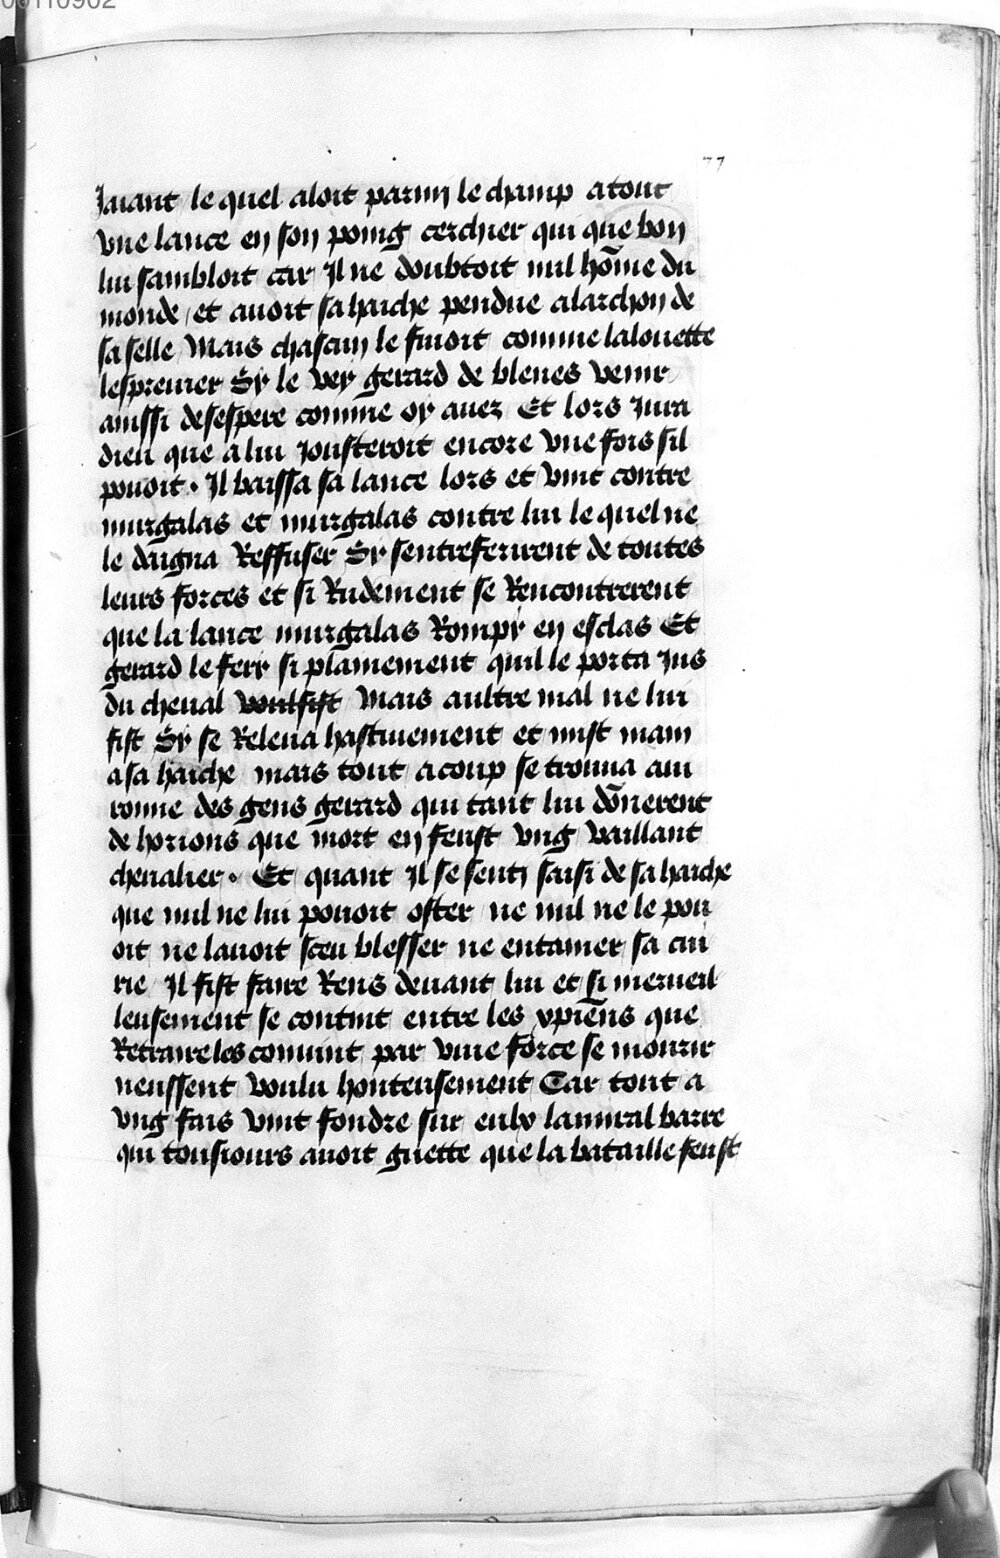 00110902
77
Jaiant le quel aloit parmy le champ atout
vne lance en son poing cerchier qui que bon
lui sambloit car Il ne doubtoit nul hōme du
monde / et auoit sa haiche pendue alarchon de
sa selle Mais chascun le fuioit comme lalouette
lespreuier Sy le vey gerard de bleues venir
ainssi desespere comme oy auez Et lors Jura
dieu que a lui Jousteroit encore vne fois sil
pouoit . Il baissa sa lance lors et vint contre
murgalas et murgalas contre lui le quel ne
le daigna Reffuser Sy sentreferirent de toutes
leurs forces et si Rudement se Rencontrerent
que la lance murgalas Rompy en esclas Et
gerard le fery si plainement quil le porta Jus
du cheual voulsist Mais aultre mal ne lui
fist Sy se Releua hastiuement et mist main
a sa haiche mais tout acoup se trouua aui
ronne des gens gerard qui tant lui dōnerent
de horions que mort en feust vng vaillant
cheualier . Et quant Il se senti saisi de sa haiche
que nul ne lui pouoit oster ne nul ne le pou
oit ne lauoit sceu blesser ne entamer sa cui
rie Il fist faire Rens deuant lui et si merueil
leusement se contint entre les xpiēns que
Retraire les conuint par viue force se mourir
neussent voulu honteusement Car tout a
vng fais vint fondre sur eulx lamiral barre
qui tousiours auoit guette que la bataille feust